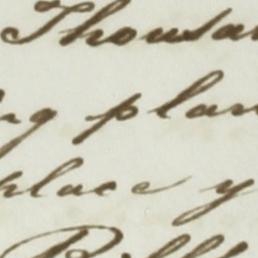 Thousan
ng plan
place y